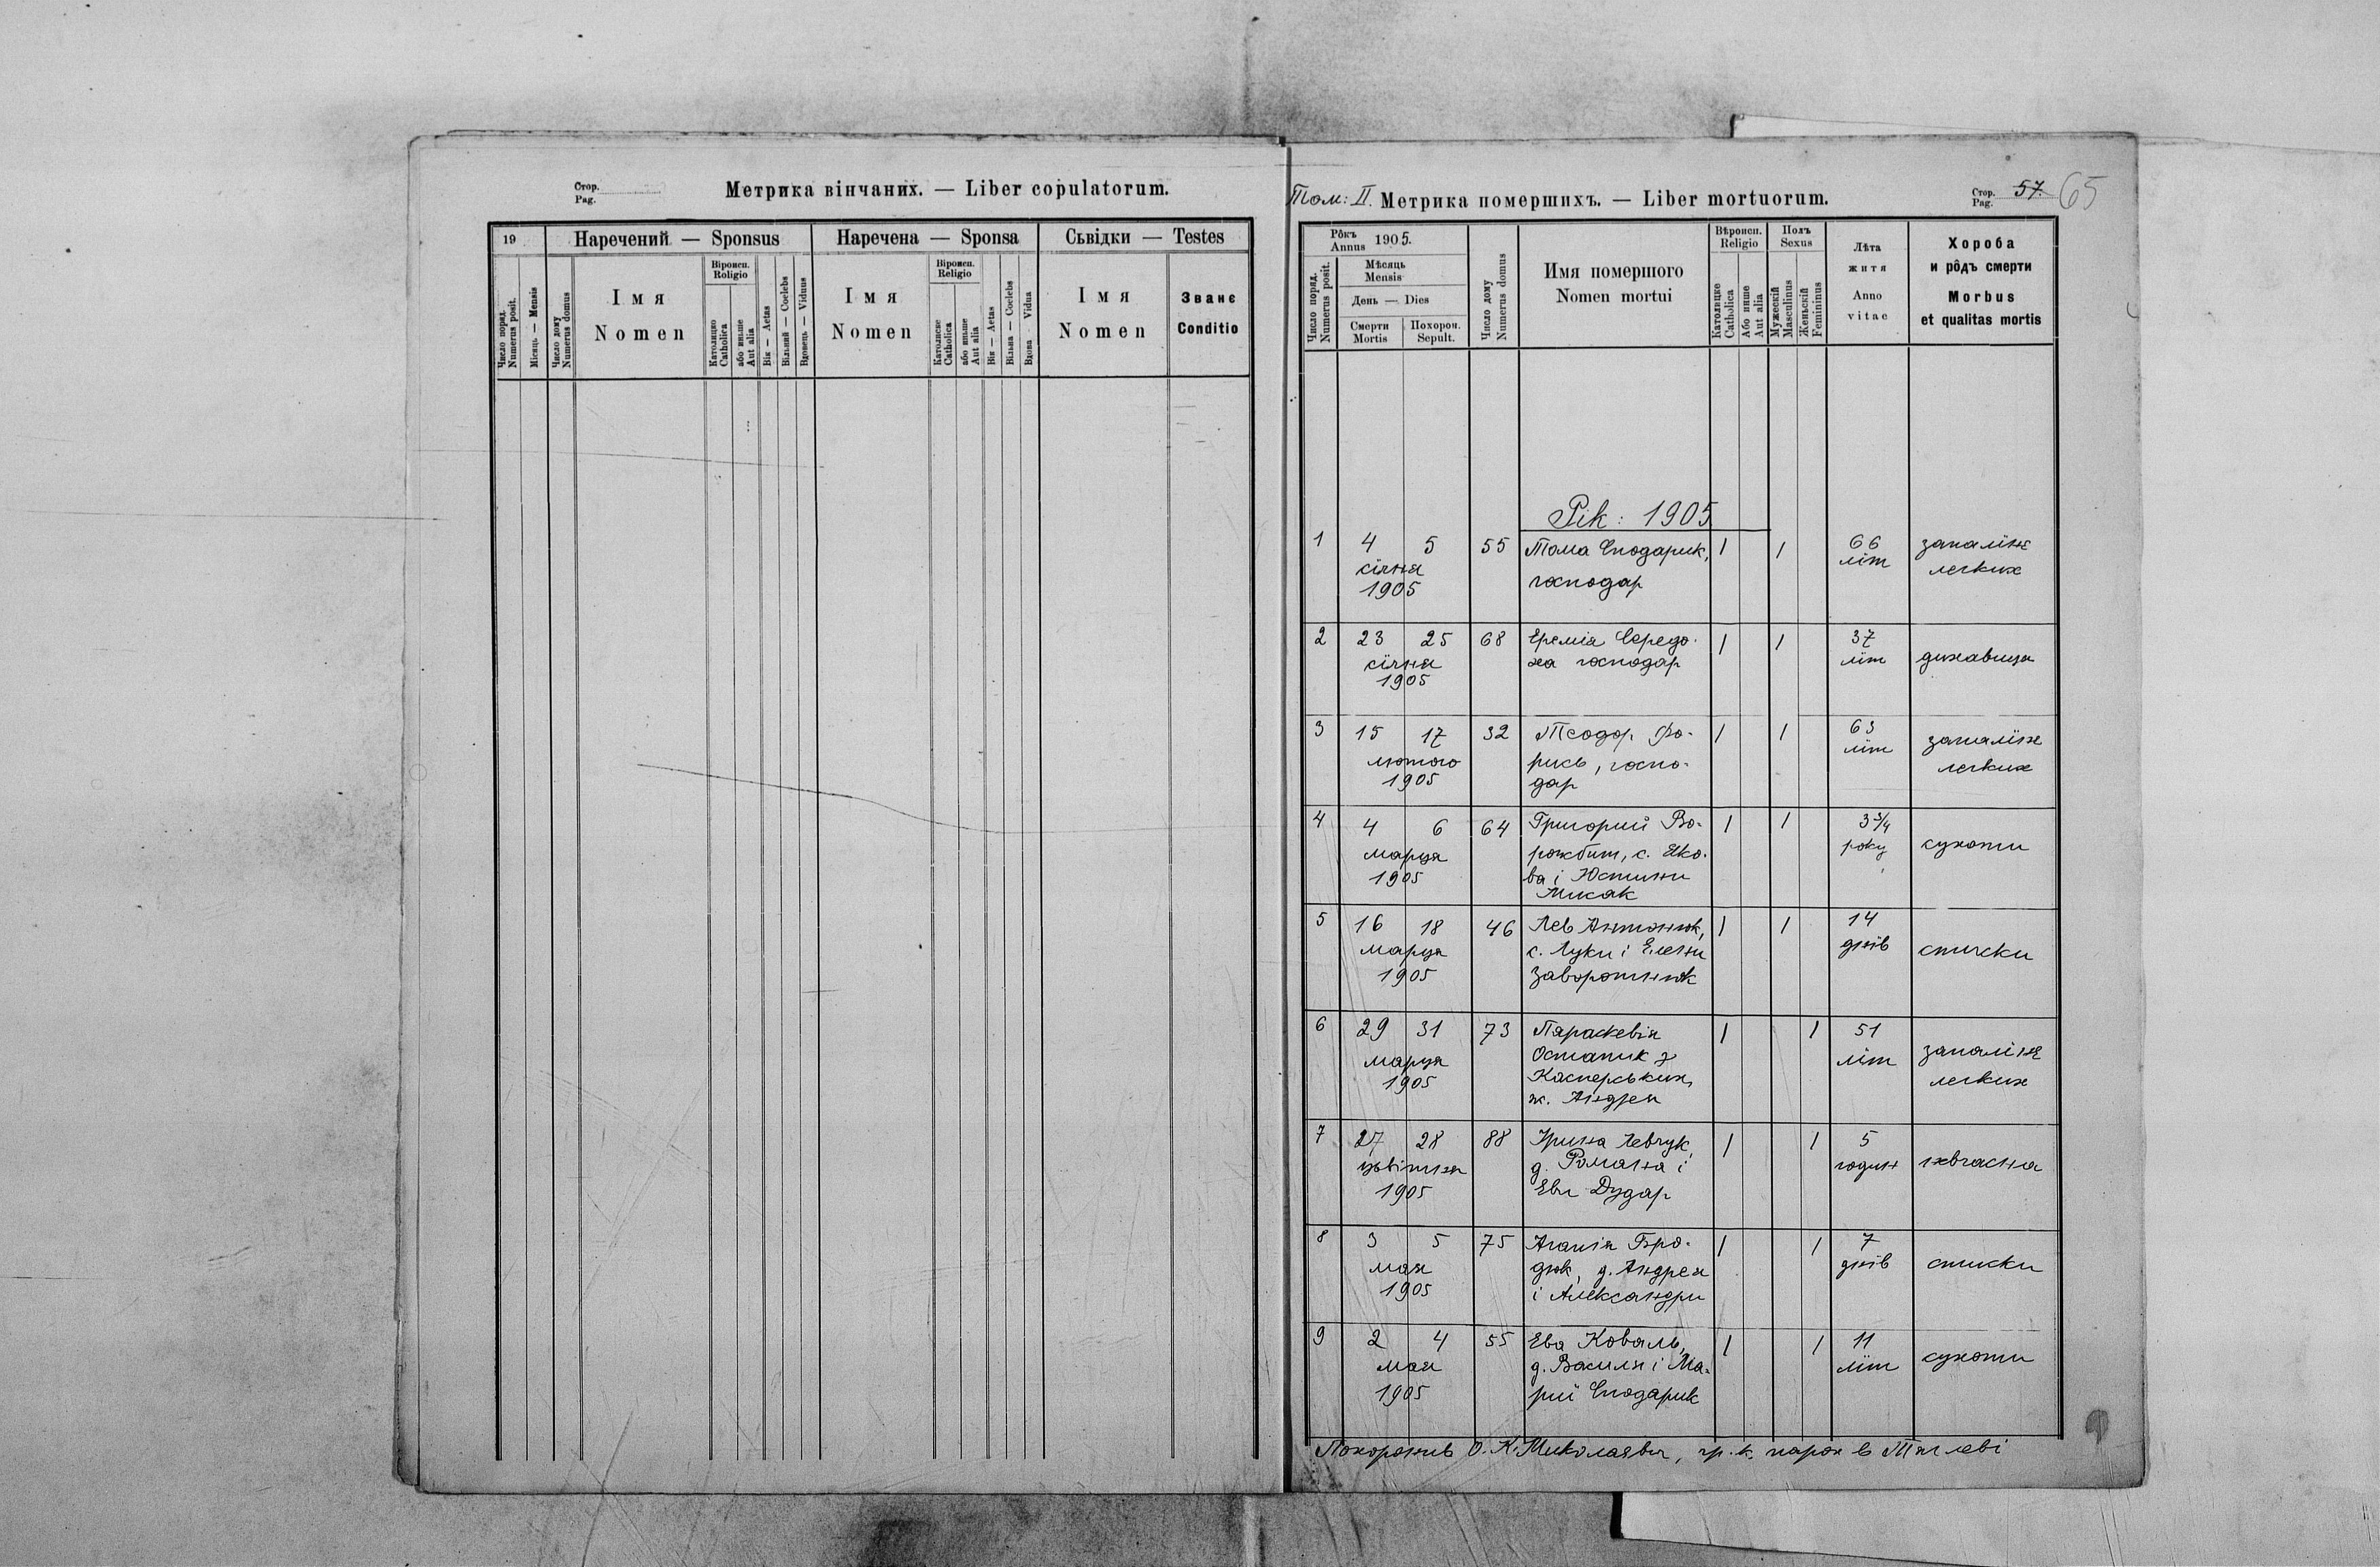 Стор.
Pag.
Метрика вінчаних. — Liber copulatorum.
19
Наречений — Sponsus
Наречена — Sponsa
Сьвідки — Testes
Число поряд.
Numerus posit.
Місяць — Mensis
Число дому
Numerus domus
Імя
Nomen
Віроисп.
Religio
Католицко
Catholica
або иньше
Aut alia
Вік — Aetas
Вільний — Coelebs
Вдовець — Viduus
Імя
Nomen
Віроисп.
Religio
Католиске
Catholica
або иньше
Aut alia
Вік — Aetas
Вільна — Coelebs
Вдова Vidua
Імя
Nomen
Званє
Conditio
Том: II. Метрика помершихъ. — Liber mortuorum.
Стор.
Pag.
57. 65
Рôкъ
Annus 1905.
Число поряд.
Numerus posit.
Мѣсяць
Mensis
День — Dies
Смерти
Mortis
Похорон.
Sepult.
Число дому
Numerus domus
Имя помершого
Nomen mortui
Вѣроисп.
Religio
Католицке
Catholica
Або инше
Aut alia
Полъ
Sexus
Мужескій
Masculinus
Женьскій
Femininus
Лѣта
житя
Anno
vitae
Хороба
и рôдъ смерти
Morbus
et qualitas mortis
Рік: 1905
1 4 5 55 Тома Сподарик, 1 1 66 запалінє
сїчня господар літ легких
1905
2 23 25 68 Єремія Середо- 1 1 37
сїчня ха господар літ дихавиця
1905
3 15 17 32 Теодор Фо- 1 1 63 запалїнє
лютого рись, госпо- літ легких
1905 дар
4 4 6 64 Григорий Во- 1 1 3 3/4
марця рожбит, с. Яко- року сухоти
1905 ва і Юстини
Микак
5 16 18 46 Лев Антонюк, 1 1 14
марця с. Луки і Елени днїв стиски
1905 Заворотнюк
6 29 31 73 Параскевія 1 1 51
марця Остапик з літ запалінє
1905 Касперських, легких
ж. Андрея
7 27 28 88 Ірина Левчук, 1 1 5
цьвітня д. Романа і годин нєвчасна
1905 Еви Дудар
8 3 5 75 Агапія Бро- 1 1 7
мая дюк, д. Андрея днїв стиски
1905 і Александри
9 2 4 55 Ева Коваль, 1 1 11
мая д. Василя і Ма- літ сухоти
1905 риї Сподарик
Похоронив О. К. Миколаєвич, гр. к. парох в